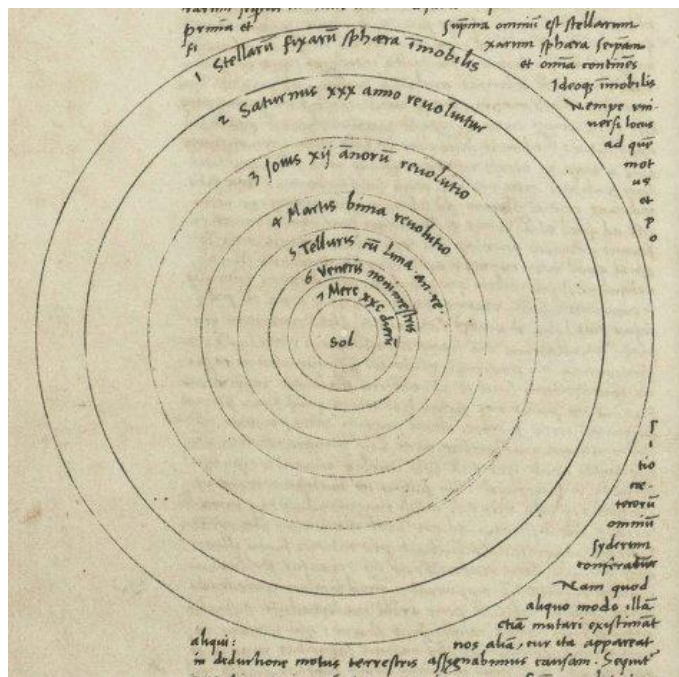 prima et Suprema omniū est stellarum
fi xarum sphæra seipsam
et omnia continēs
Ideoqȝ īmobilis
Nempe uni-
uersi locus
ad quē
mot
us
et
p
o
1 Stellarū fixarū sphæra īmobilis
2 Saturnus xxx anno reuoluitur
3 Iouis xij annorū reuolutio
4 Martis bima reuolutio
5 Telluris cū Luna an. re.
6 Veneris nonimestris
7 Merc xxc dierū
Sol
s
i
tio
cæ-
terorū
omniū
syderum
conferatur
Nam quod
aliquo modo illā
etiā mutari existimāt
aliqui: nos aliā, cur ita appareat
in deductione motus terrestris assignabimus causam. Sequit